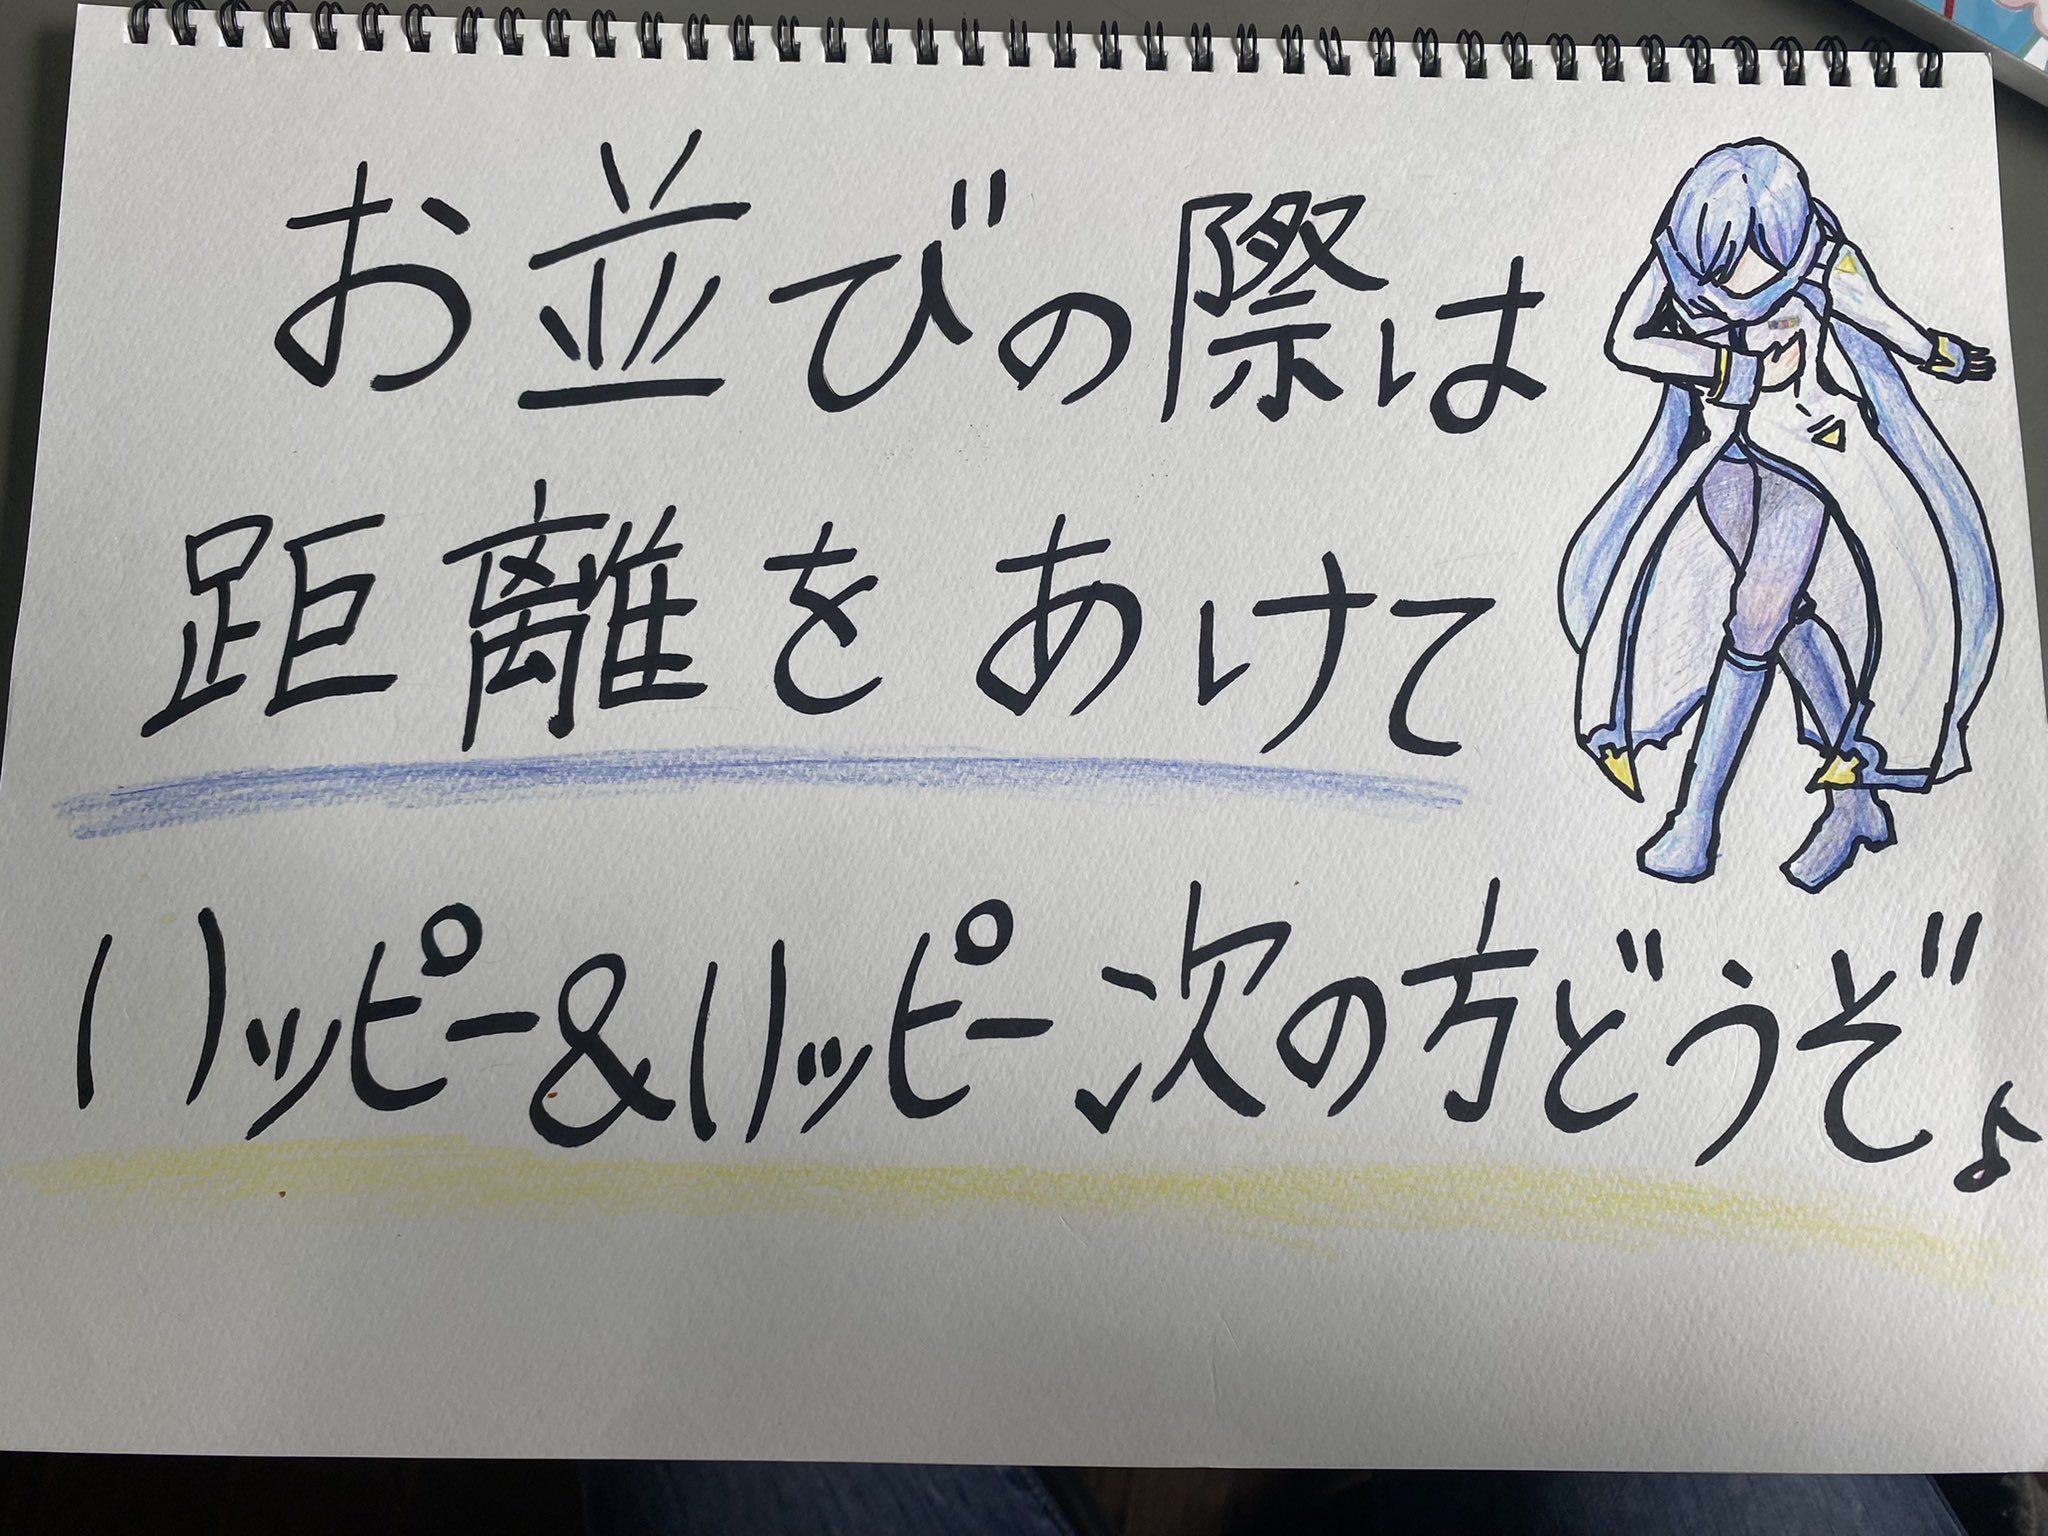 お並びの際は
距離をあけて
ハッピー&ハッピー次の方どうぞ♪